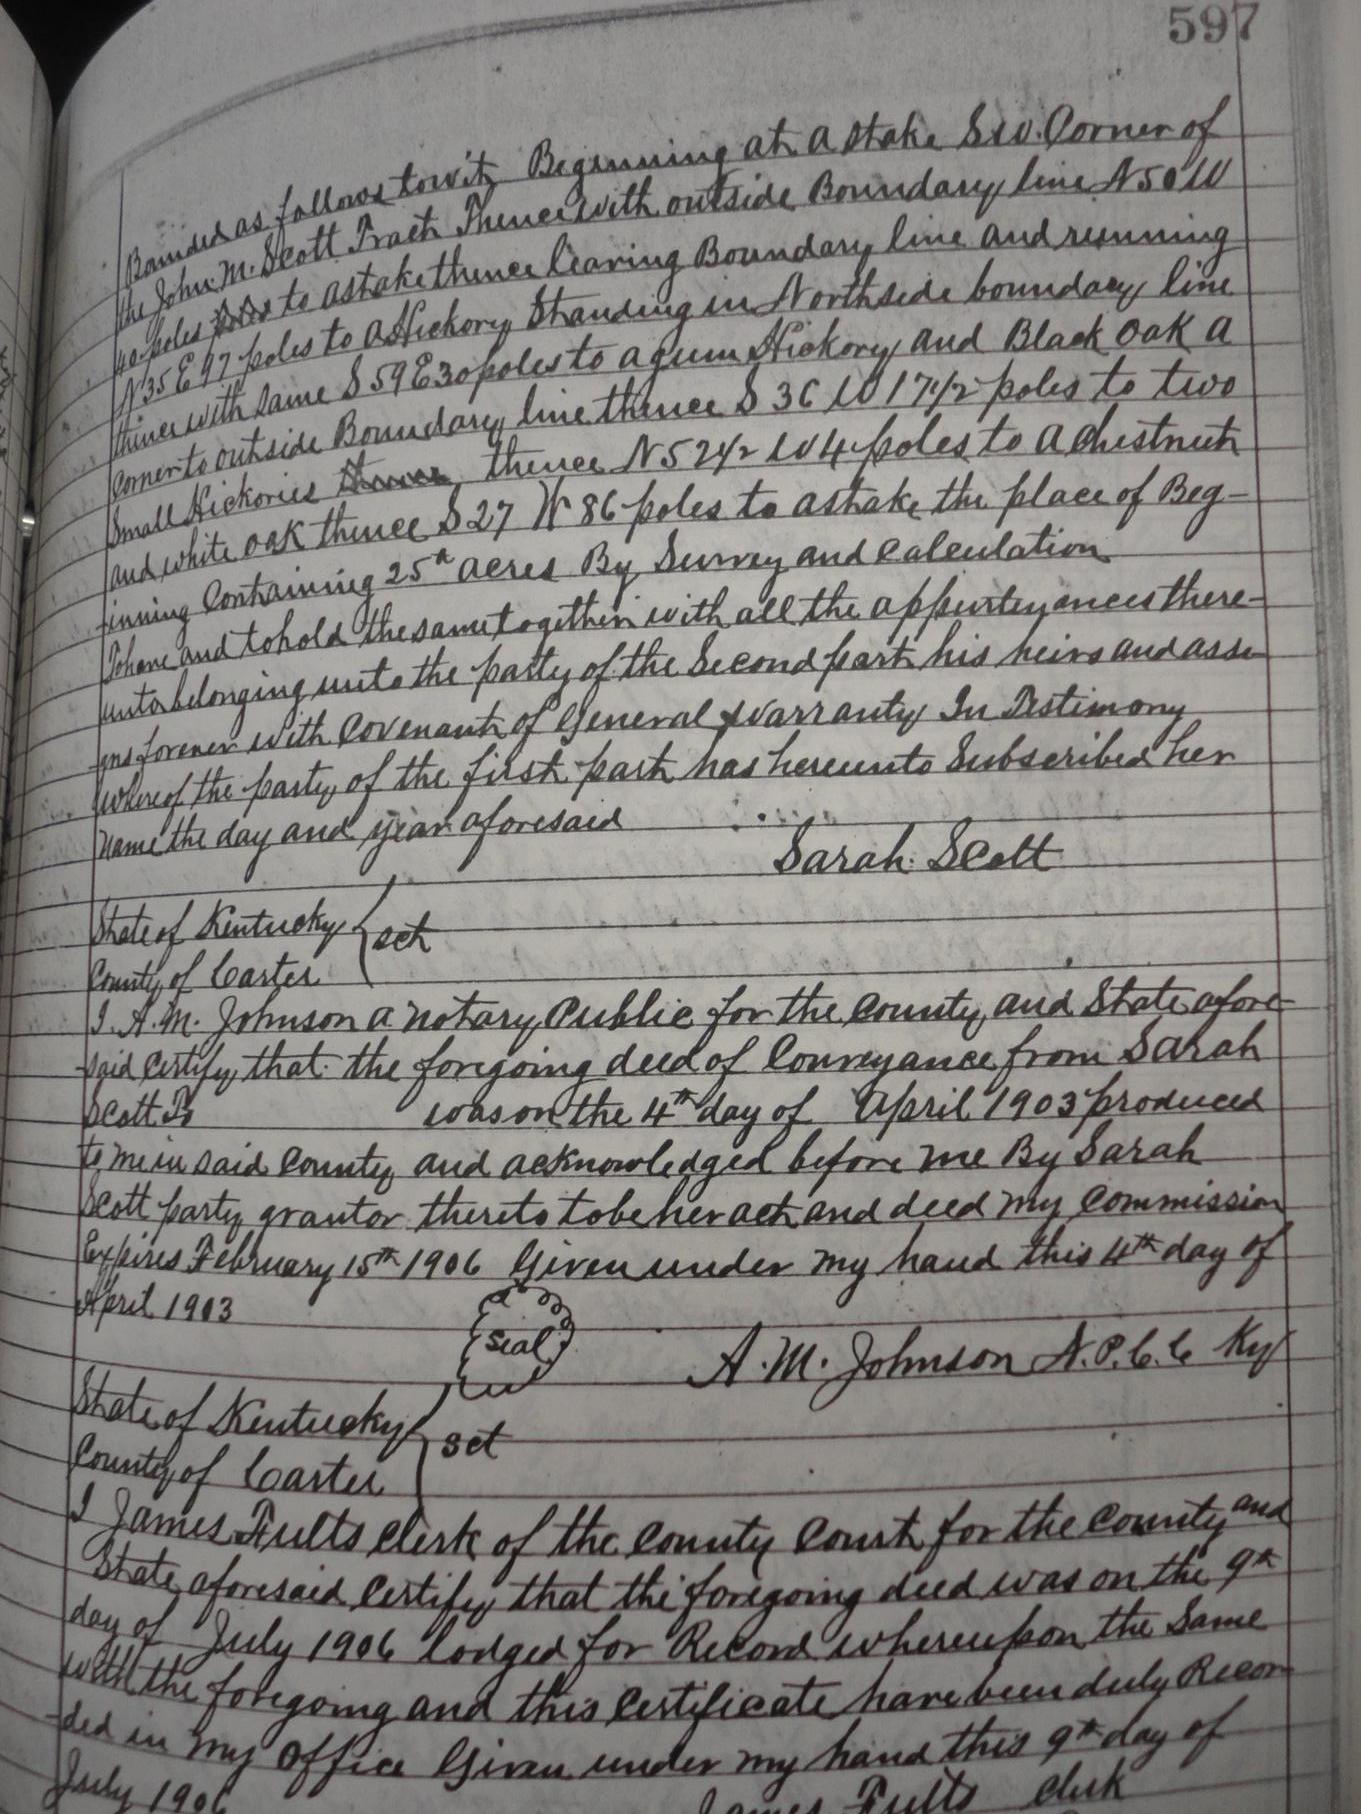 597
Bounded as follows towit, Beginning at a stake S.W. Corner of
the John. M. Scott Tract Thence with outside Boundary line N50W
40 poles to a stake thence leaving Boundary line and running
N35E 97 poles to a Hickory Standing in Northside boundary line
thence with same S59E30 poles to a gum Hickory and Black oak a
corner to outside Boundary line thence S36W 17½ poles to two
Small Hickories thence N52½ W4 poles to a chestnut
and white oak thence S27 W 86 poles to a stake the place of Beg-
inning Containing 25 acres By Survey and calculation
To have and to hold the same together with all the appurtenances there-
unto belonging unto the party of the Second part his heirs and assi
gns forever with Covenant of General Warranty In Testimony
whereof the party of the first part has hereunto Subscribed her
name the day and year aforesaid
Sarah Scott
State of Kentucky
County of Carter
sct
I. A. M. Johnson a notary Public for the county and State afore-
-said certify that the foregoing deed of Conveyance from Sarah
Scott To was on the 4th day of April 1903 produced
to me in said county and acknowledged before me By Sarah
Scott party grantor thereto to be her act and deed my commission
Expires February 15th 1906 Given under my hand this 4th day of
April 1903
Seal
A. M. Johnson N.P.C.C Ky
State of Kentucky
County of Carter
sct
I James Fults clerk of the county court for the county and
State aforesaid certify that the foregoing deed was on the 9th
day of July 1906 lodged for Record whereupon the Same
with the foregoing and this certificate have been duly Recor
-ded in my office Given under my hand this 9th day of
July 1906
James Fults clerk